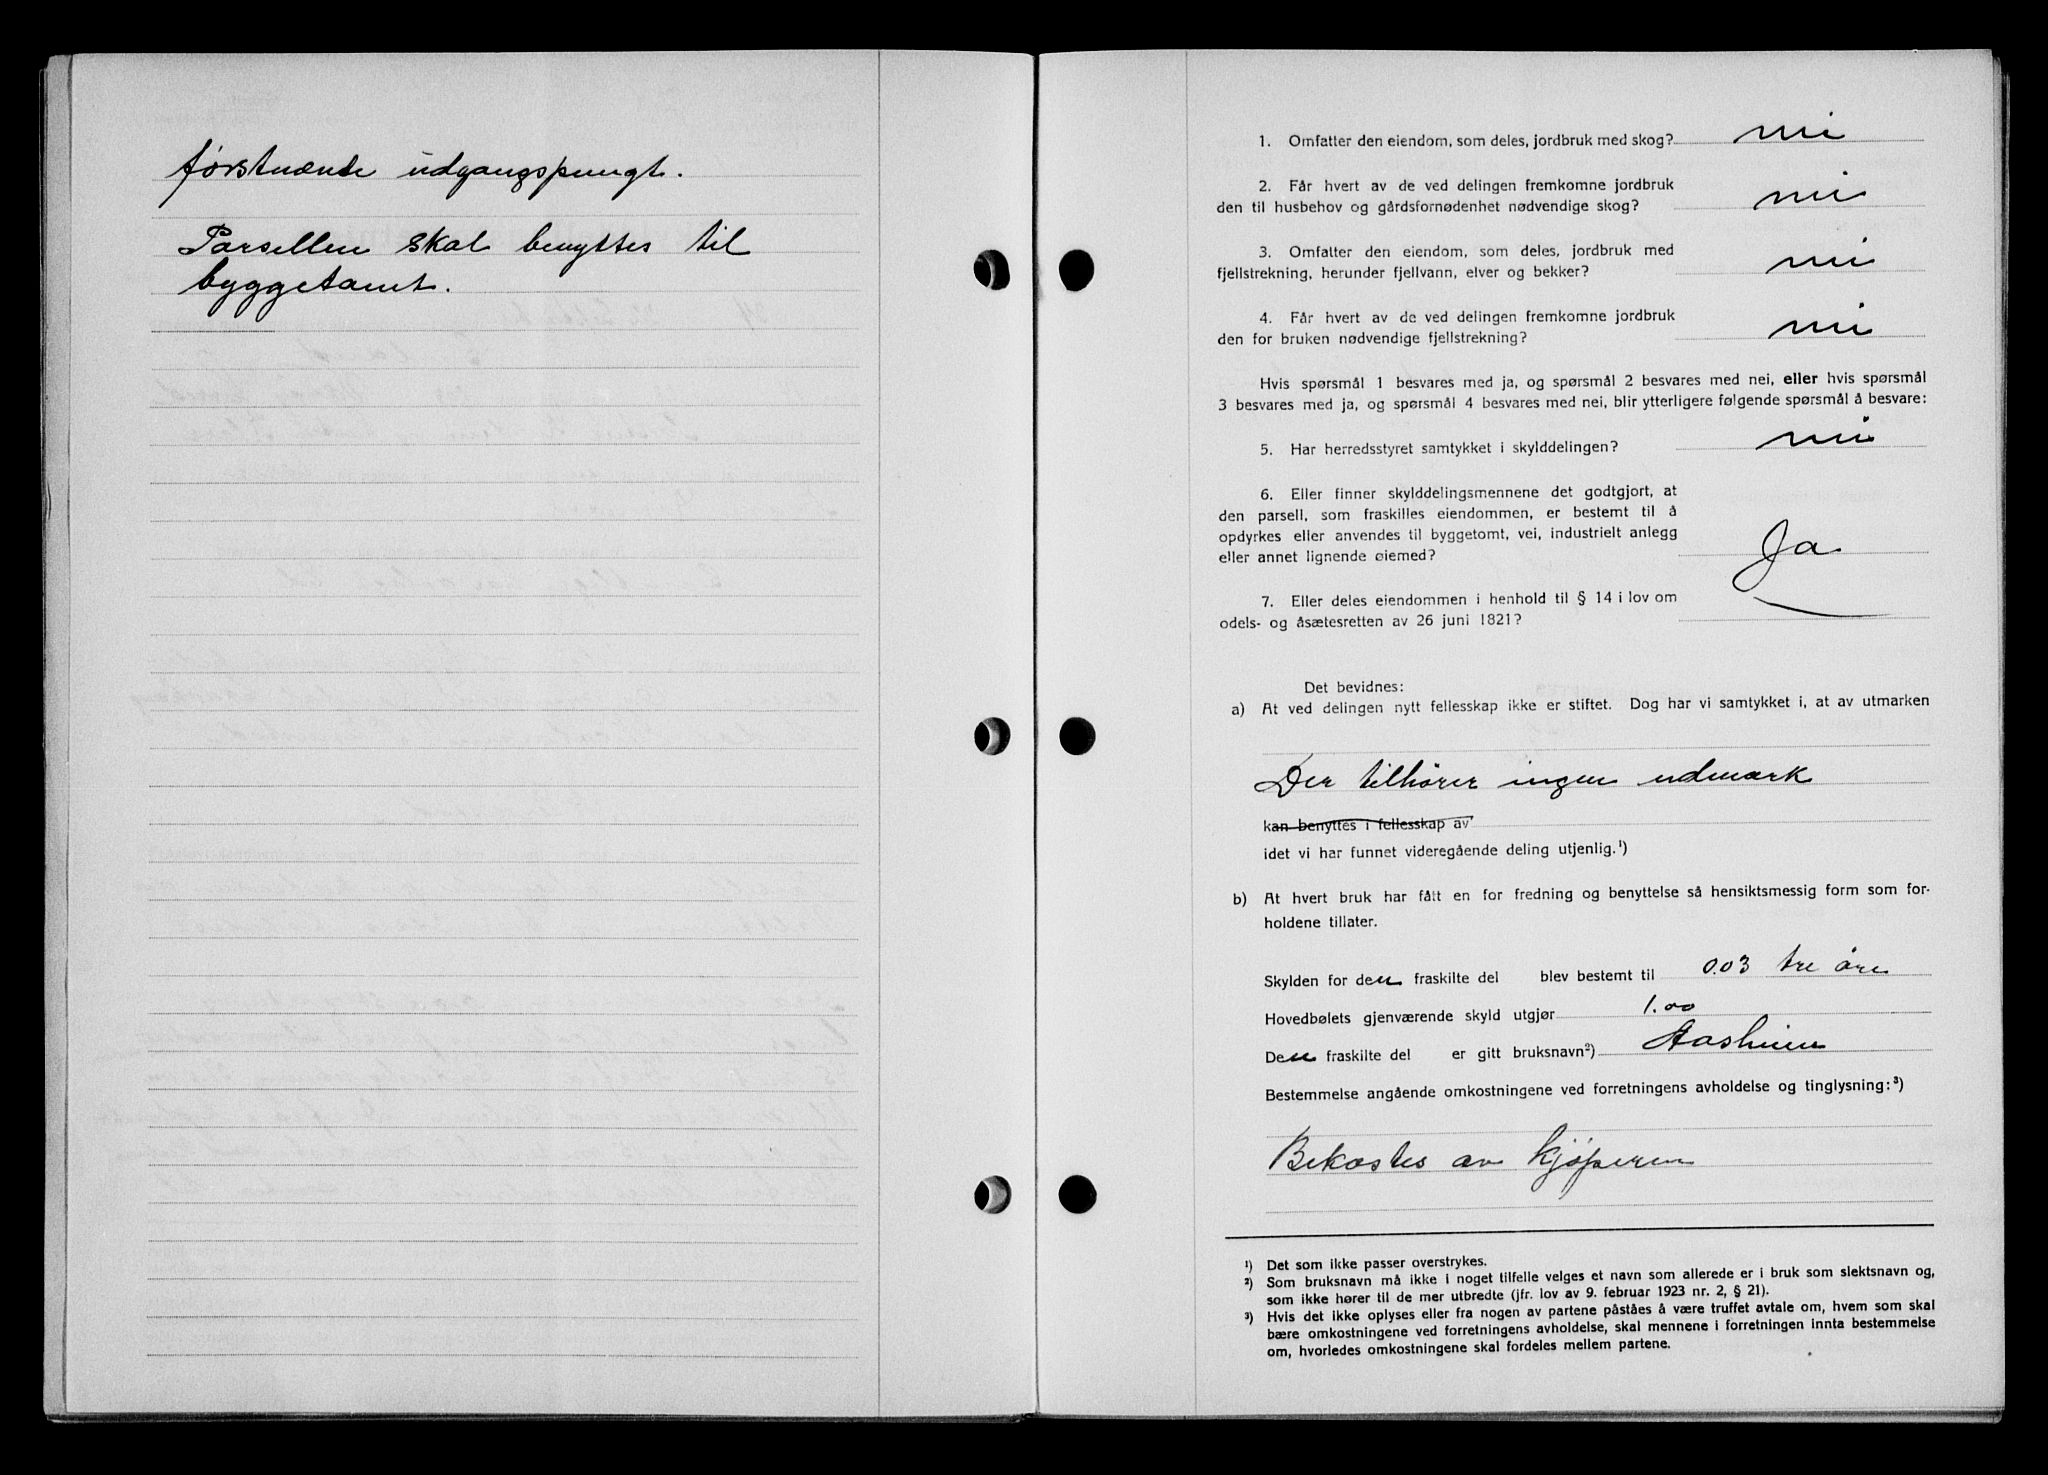 førstnænte udgangspungt.
Parsellen skal benyttes til
byggetomt.
1. Omfatter den eiendom, som deles, jordbruk med skog? nei
2. Får hvert av de ved delingen fremkomne jordbruk
den til husbehov og gårdsfornødenhet nødvendige skog? nei
3. Omfatter den eiendom, som deles, jordbruk med
fjellstrekning, herunder fjellvann, elver og bekker? nei
4. Får hvert av de ved delingen fremkomne jordbruk
den for bruken nødvendige fjellstrekning? nei
Hvis spørsmål 1 besvares med ja, og spørsmål 2 besvares med nei, eller hvis spørsmål
3 besvares med ja, og spørsmål 4 besvares med nei, blir ytterligere følgende spørsmål å besvare:
5. Har herredsstyret samtykket i skylddelingen? nei
6. Eller finner skylddelingsmennene det godtgjort, at
den parsell, som fraskilles eiendommen, er bestemt til å
opdyrkes eller anvendes til byggetomt, vei, industrielt anlegg
eller annet lignende øiemed? Ja
7. Eller deles eiendommen i henhold til § 14 i lov om
odels- og åsætesretten av 26 juni 1821?
Det bevidnes:
a) At ved delingen nytt fellesskap ikke er stiftet. Dog har vi samtykket i, at av utmarken
Der tilhører ingen udmark
kan benyttes i fellesskap av
idet vi har funnet videregående deling utjenlig.¹)
b) At hvert bruk har fått en for fredning og benyttelse så hensiktsmessig form som for-
holdene tillater.
Skylden for den fraskilte del blev bestemt til 0.03 tre øre
Hovedbølets gjenværende skyld utgjør 1.00
Den fraskilte del er gitt bruksnavn²) Aasheim
Bestemmelse angående omkostningene ved forretningens avholdelse og tinglysning:³)
Bekostes av kjøperen
¹) Det som ikke passer overstrykes.
²) Som bruksnavn må ikke i noget tilfelle velges et navn som allerede er i bruk som slektsnavn og,
som ikke hører til de mer utbredte (jfr. lov av 9. februar 1923 nr. 2, § 21).
³) Hvis det ikke oplyses eller fra nogen av partene påståes å være truffet avtale om, hvem som skal
bære omkostningene ved forretningens avholdelse, skal mennene i forretningen innta bestemmelse
om, hvorledes omkostningene skal fordeles mellem partene.